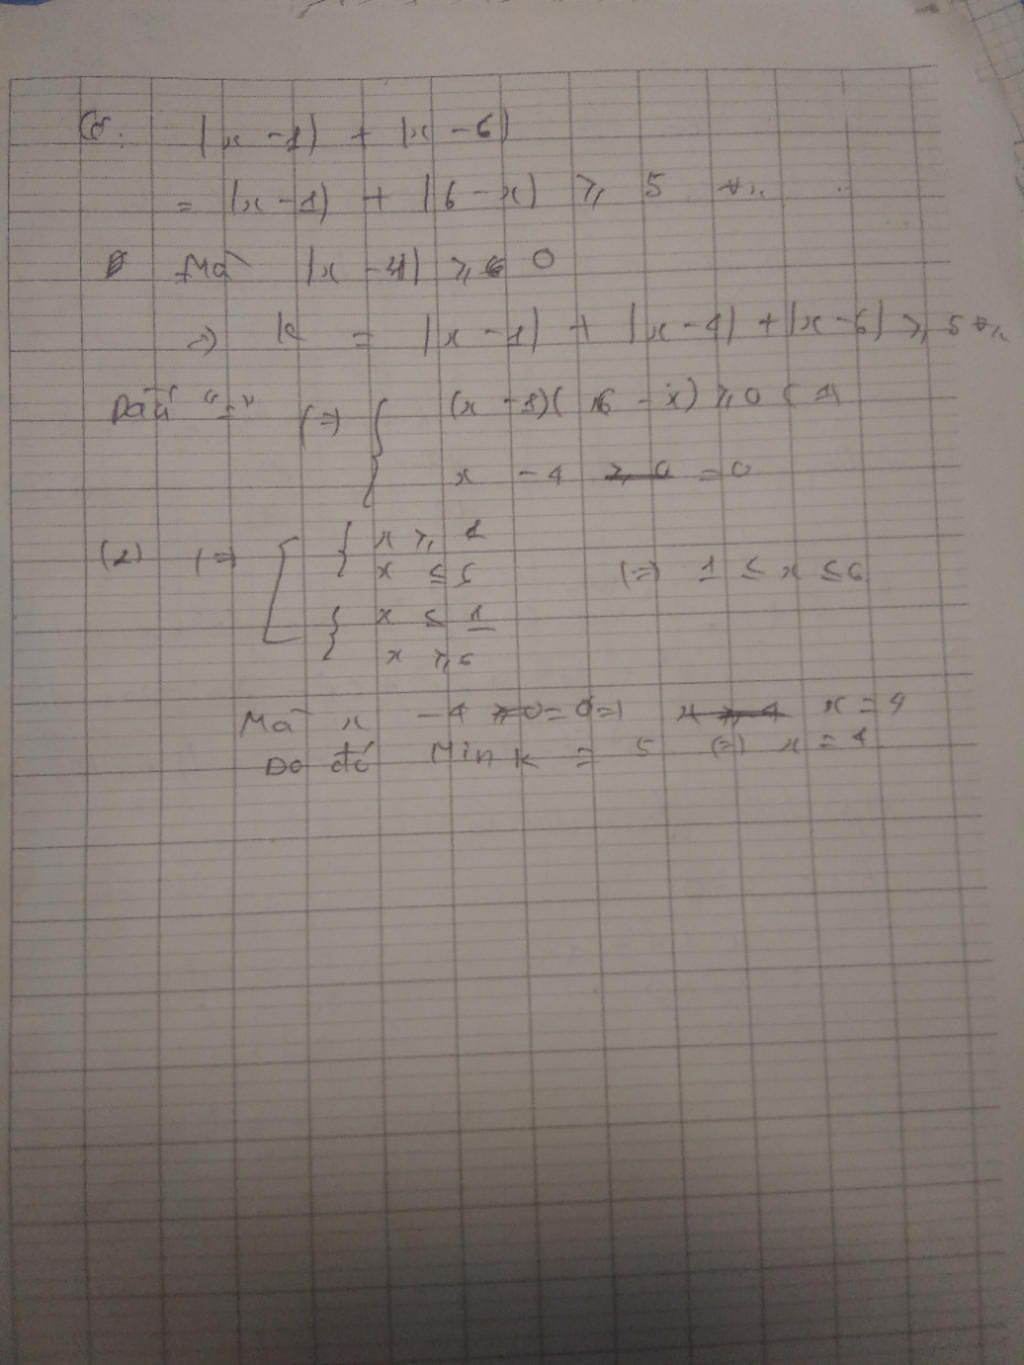 Có. |x - 1| + |x - 6|
= |x - 1| + |6 - x| ⩾ 5 ∀x
Mà |x - 4| ⩾ 0
=> K = |x - 1| + |x - 4| + |x - 6| ⩾ 5 ∀x
Dấu "=" (=) { (x - 1)(6 - x) ⩾ 0 (1)
x - 4 = 0
(1) (=) [ { x ⩾ 1
x ≤ 6 (=) 1 ≤ x ≤ 6
{ x ≤ 1
x ⩾ 6
Mà x - 4 = 0 =) x = 4
Do đó Min K = 5 (=) x = 4